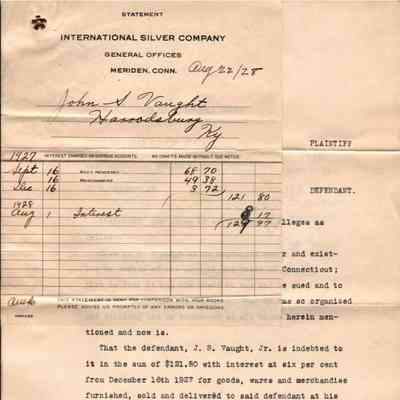 STATEMENT
INTERNATIONAL SILVER COMPANY
GENERAL OFFICES
MERIDEN, CONN. Aug 22/28
John S. Vaught
Harrodsburg
Ky
PLAINTIFF
1927 INTEREST CHARGED ON OVERDUE ACCOUNTS. NO DRAFTS MADE WITHOUT DUE NOTICE.
Sept 16 MDSE RENDERED 68 70
16 MERCHANDISE 49 38
Dec 16 3 72
121 80
DEFENDANT.
1928
Aug 1 Interest 8 17
129 97
lleges as
r and exist-
Connecticut;
e sued and to
as so organized
herein men-
THIS STATEMENT IS SENT FOR COMPARISON WITH YOUR BOOKS
PLEASE ADVISE US PROMPTLY OF ANY ERRORS OR OMISSIONS
tioned and now is.
That the defendant, J. S. Vaught, Jr. is indebted to
it in the sum of $121.80 with interest at six per cent
from December 16th 1927 for goods, wares and merchandise
furnished, sold and delivered to said defendant at his